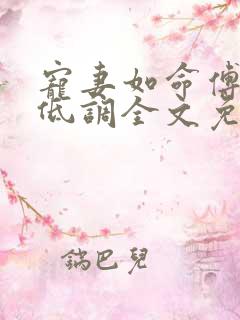 寵妻如命傅
低調全文免
鍋巴兒